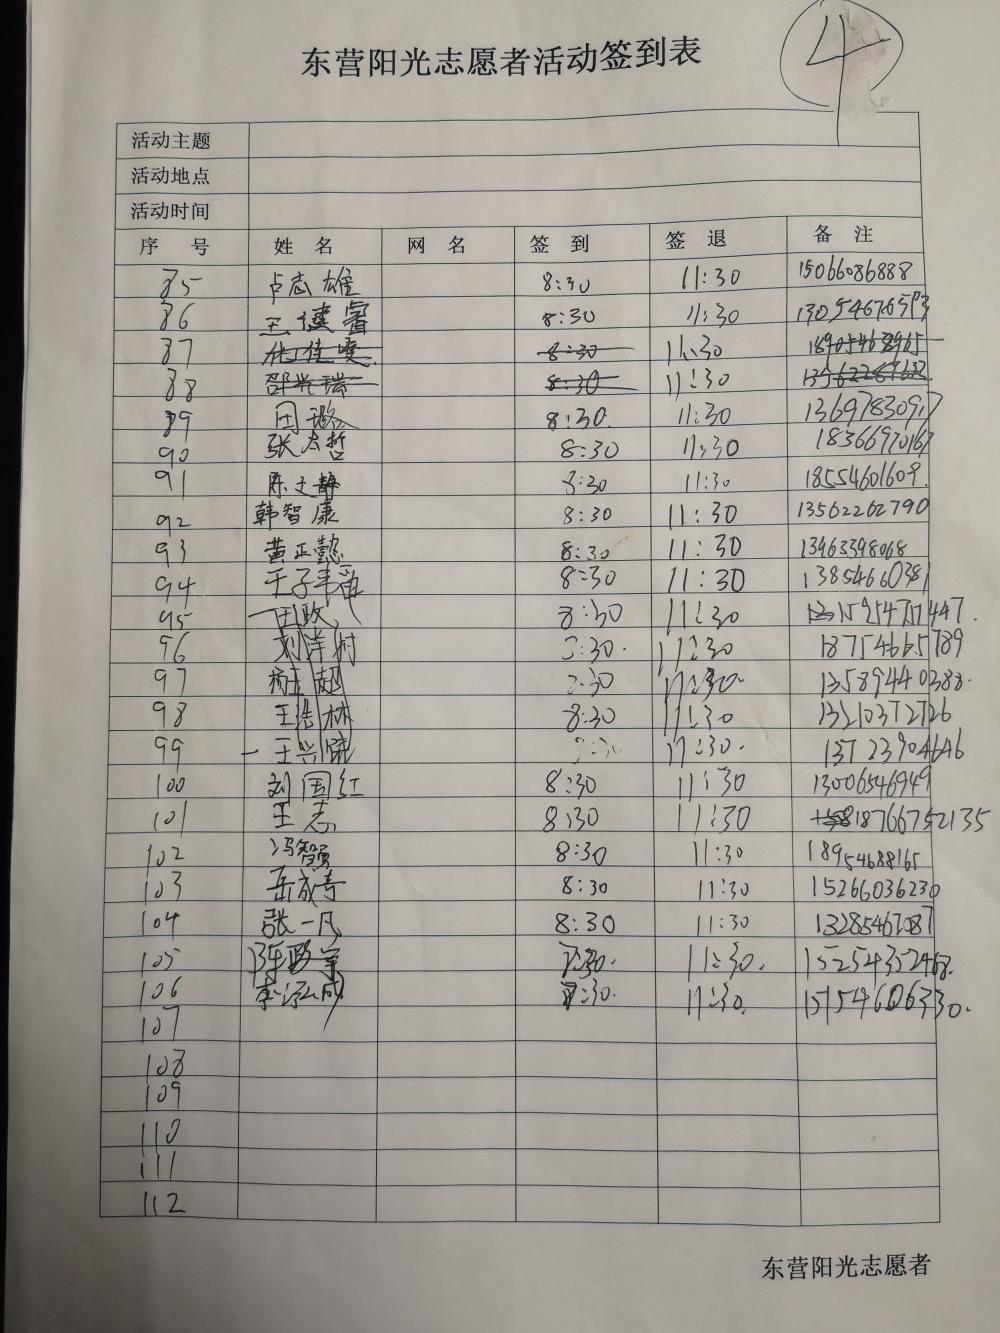 东营阳光志愿者活动签到表
4
活动主题
活动地点
活动时间
序 号 姓 名 网 名 签 到 签 退 备 注
85 卢志雄 8:30 11:30 15066086888
86 王健睿 8:30 11:30
87 8:30 11:30 18905468965
88 邵兴瑞 8:30 11:30
89 田璐 8:30 11:30 13697830917
90 张太哲 8:30 11:30 18366970167
91 陈文静 8:30 11:30 18554601609
92 韩智康 8:30 11:30 13562262790
93 黄正懿 8:30 11:30 13963398068
94 王子 8:30 11:30 13854660381
95 田政 8:30 11:30
96 刘洋村 8:30 11:30 18754665789
97 8:30 11:30 13589440388
98 王浩林 8:30 11:30 13210372726
99 王兴 8:30 11:30
100 刘国红 8:30 11:30 13006546949
101 王志 8:30 11:30 18766752135
102 冯智强 8:30 11:30 18954688165
103 岳成奇 8:30 11:30 15266036230
104 张一凡 8:30 11:30 13285467087
105 11:30 15254352468
106 李泓成 11:30 15754606330
107
108
109
110
111
112
东营阳光志愿者